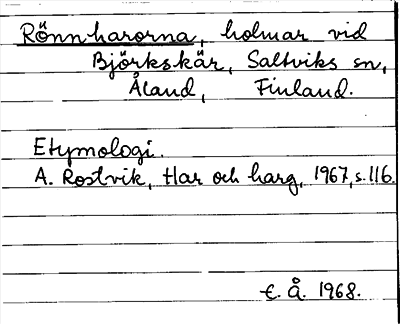 Rönnharorna, holmar vid
Björkskär, Saltviks sn,
Åland, Finland.
Etymologi.
A. Rostvik, Har och harg, 1967, s. 116.
E. Å. 1968.